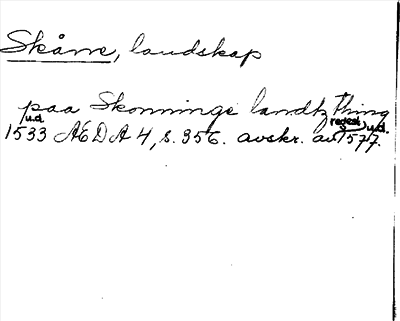 Skåne, landskap
paa Skonninge landtz thing
u.d. regest u.d.
1533 AEDA 4, s. 356. avskr. av 1577.